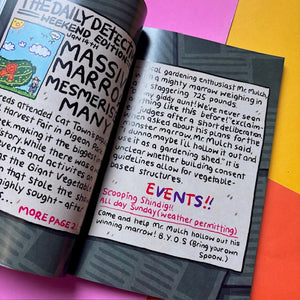 THE DAILY DETECT
WEEKEND EDITION
JAN 14TH
MASSIV
MARRO
MESMERIS
MANY
reds attended Cat Town's pr
Harvest Fair in Pigeon Par
making it the biggest e
history. While there was a
events and activities o
as the Giant Vegetable
that stole the sho
highly sought-after
MORE PAGE 2
cal gardening enthusiast Mr. Mulch
marrow weighing in
staggering 226 pounds
giddy aunt! We've never seen
thing like this before!' Exclaim-
judges after a short deliberation
when asked about his plans for the
monster marrow, Mr. Mulch said
dunno maybe I'll hollow it out and
use it as a gardening shed' it is
unclear whether building consent
guidelines allow for vegetable-
based structures.
EVENTS!!
Scooping Shindig!!
All day Sunday (weather permitting)
Come and help Mr. Mulch hollow out his
winning marrow! B.Y.O.S (Bring your own
Spoon.)